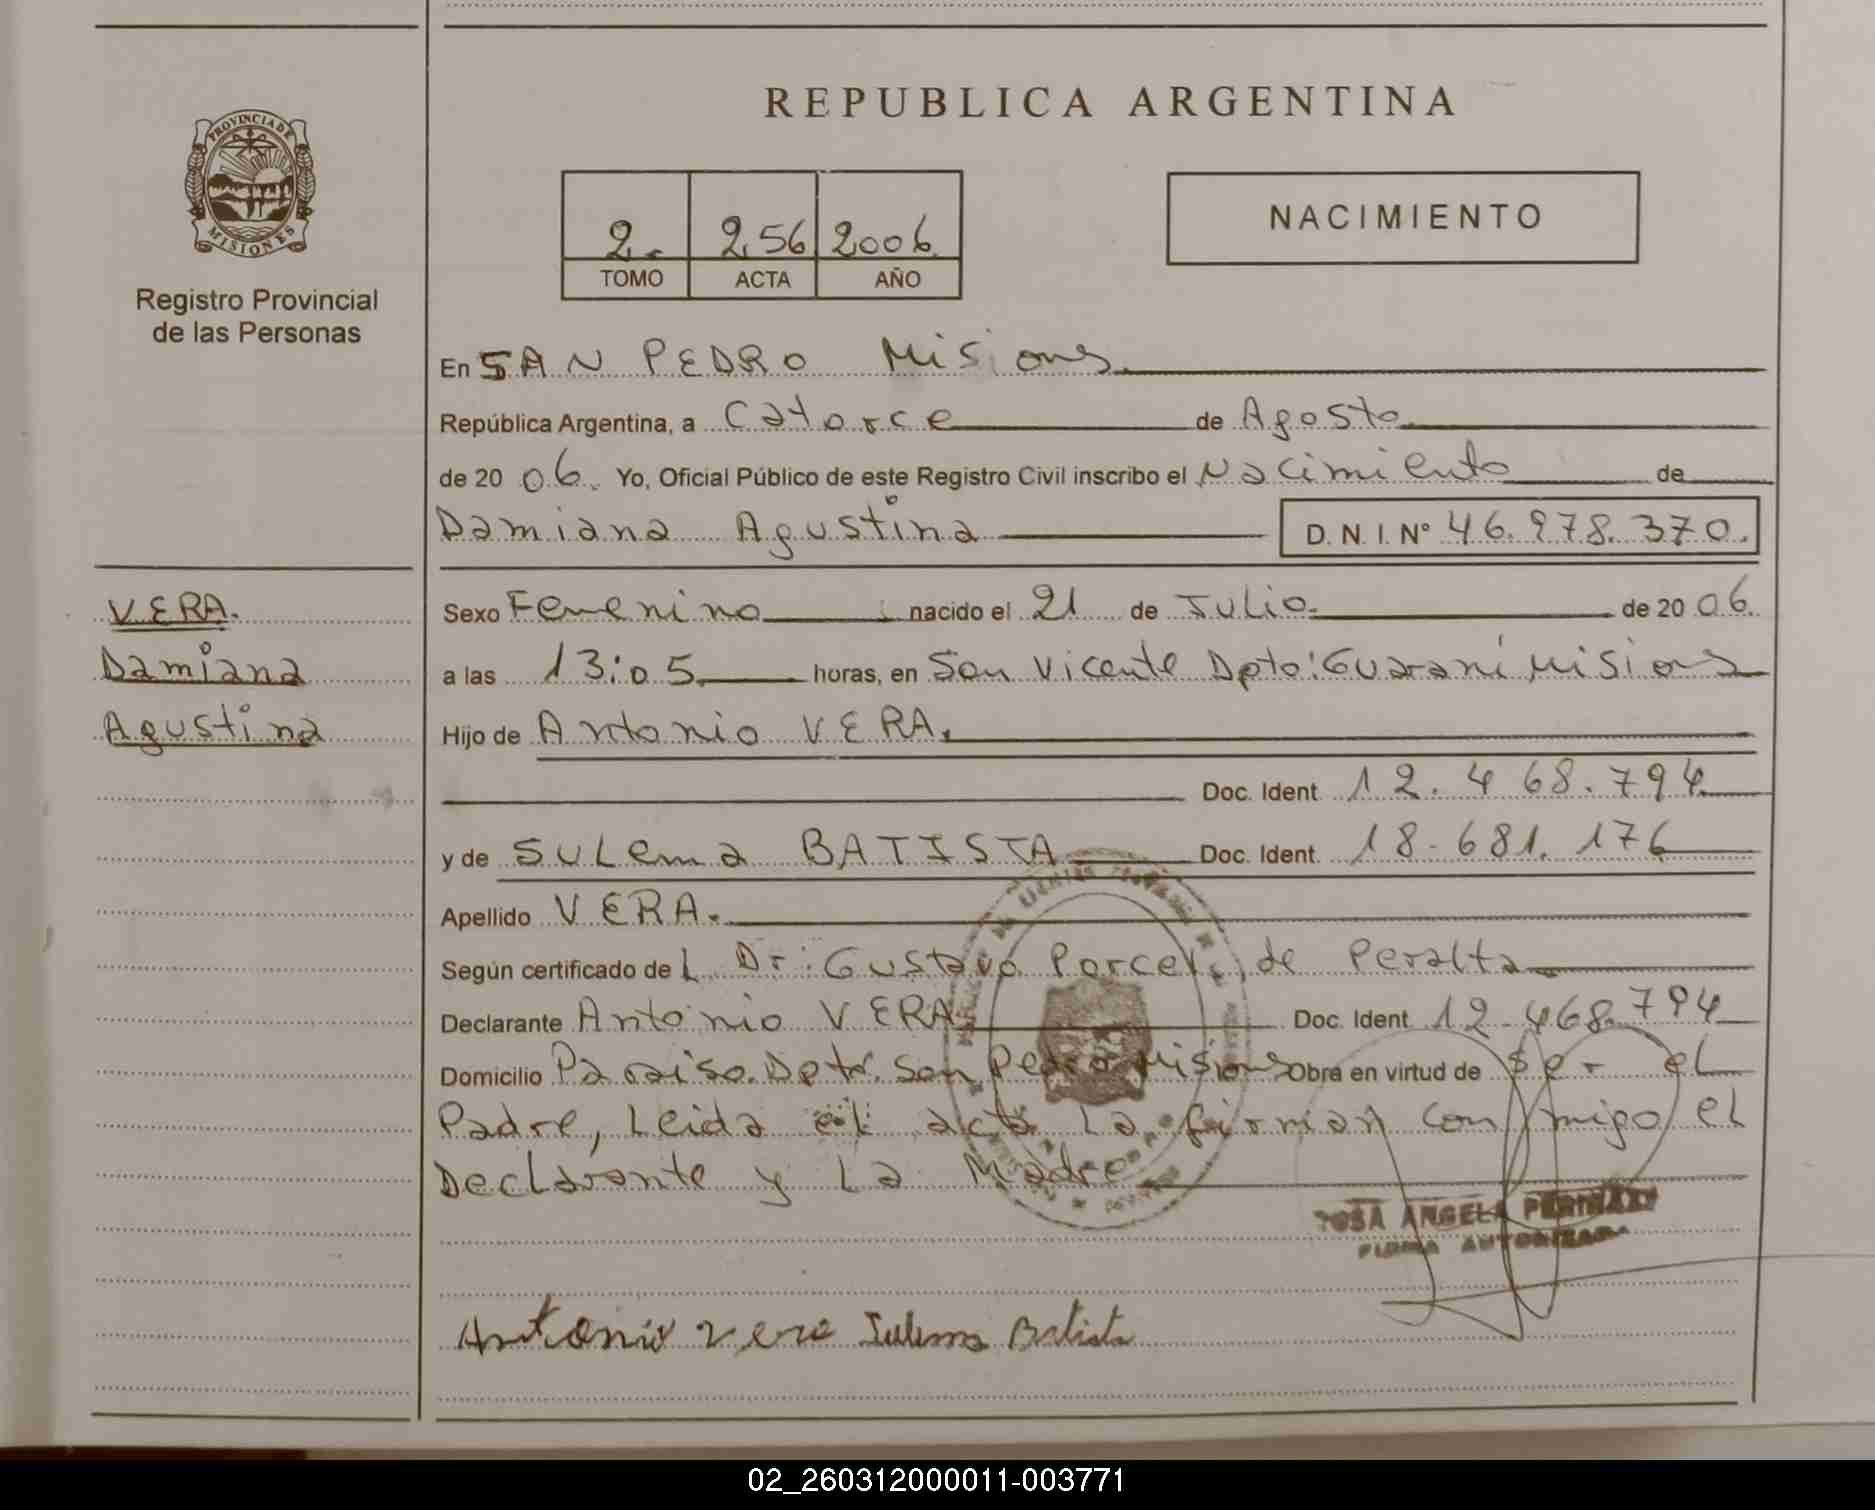 REPUBLICA ARGENTINA
PROVINCIA DE
MISIONES
Registro Provincial
de las Personas
2. 256 2006
TOMO ACTA AÑO
NACIMIENTO
En SAN PEDRO Misiones
República Argentina, a Catorce de Agosto
de 20 06. Yo, Oficial Público de este Registro Civil inscribo el Nacimiento de
Damiana Agustina D. N. I. Nº 46.978.370.
VERA.
Damiana
Agustina
Sexo Femenino nacido el 21 de Julio. de 20 06.
a las 13:05 horas, en San Vicente Dpto: Guaraní Misiones
Hijo de Antonio VERA.
Doc. Ident. 12.468.794
y de SULema BATISTA Doc. Ident. 18.681.176
Apellido VERA.
Según certificado del Dr: Gustavo Porcel de Peralta
Declarante Antonio VERA Doc. Ident. 12.468.794
Domicilio Paraiso. Dpto. San Pedro Misiones Obra en virtud de Ser el
Padre, Leida el acta La firman conmigo el
Declarante y La Madre
ROSA ANGELA
FIRMA AUTORIZADA
Antonio Vera Sulema Batista
02_260312000011-003771